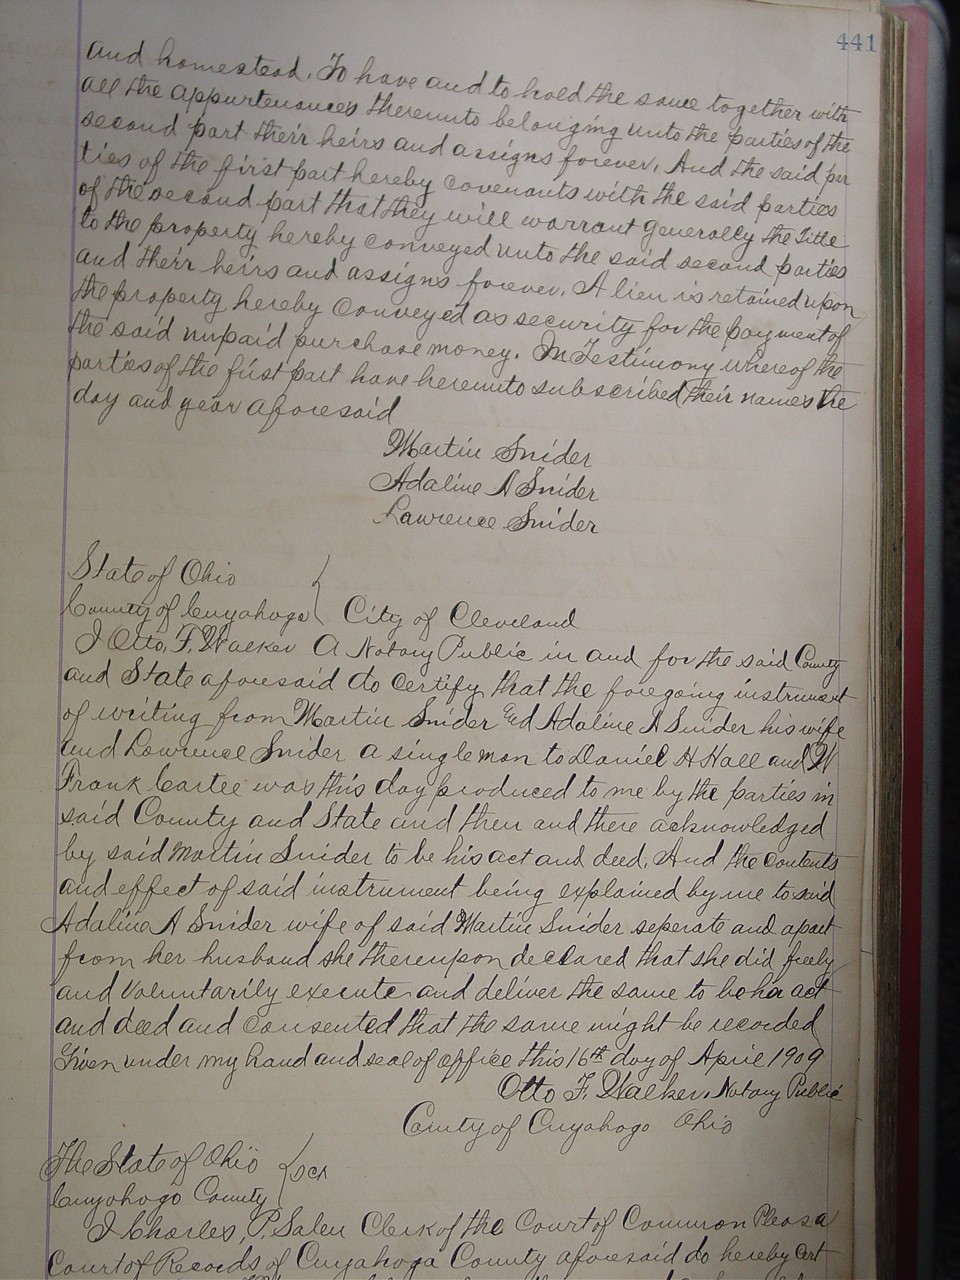 441
and homestead. To have and to hold the same together with
all the appurtenances thereunto belonging unto the parties of the
second part their heirs and assigns forever. And the said par
ties of the first part hereby covenants with the said parties
of the second part that they will warrant generally the Title
to the property hereby conveyed unto the said second parties
and their heirs and assigns forever. A lien is retained upon
the property hereby conveyed as security for the payment of
the said unpaid purchase money. In Testimony whereof the
parties of the first part have hereunto subscribed their names the
day and year aforesaid
Martin Snider
Adaline A Snider
Lawrence Snider
State of Ohio
County of Cuyahoga City of Cleveland
I Otto. F. Walker A Notary Public in and for the said County
and State aforesaid do certify that the foregoing instrument
of writing from Martin Snider and Adaline A Snider his wife
and Lawrence Snider a single man to Daniel H Hall and W
Frank Cartee was this day produced to me by the parties in
said County and State and then and there acknowledged
by said Martin Snider to be his act and deed. And the contents
and effect of said instrument being explained by me to said
Adaline A Snider wife of said Martin Snider seperate and apart
from her husband she thereupon declared that she did freely
and voluntarily execute and deliver the same to be her act
and deed and consented that the same might be recorded
Given under my hand and seal of office this 16th day of April 1909
Otto F. Walker. Notary Public
County of Cuyahoga Ohio
The State of Ohio
Cuyahoga County
I Charles, P. Salen Clerk of the Court of Common Pleas a
Court of Records of Cuyahoga County aforesaid do hereby cert